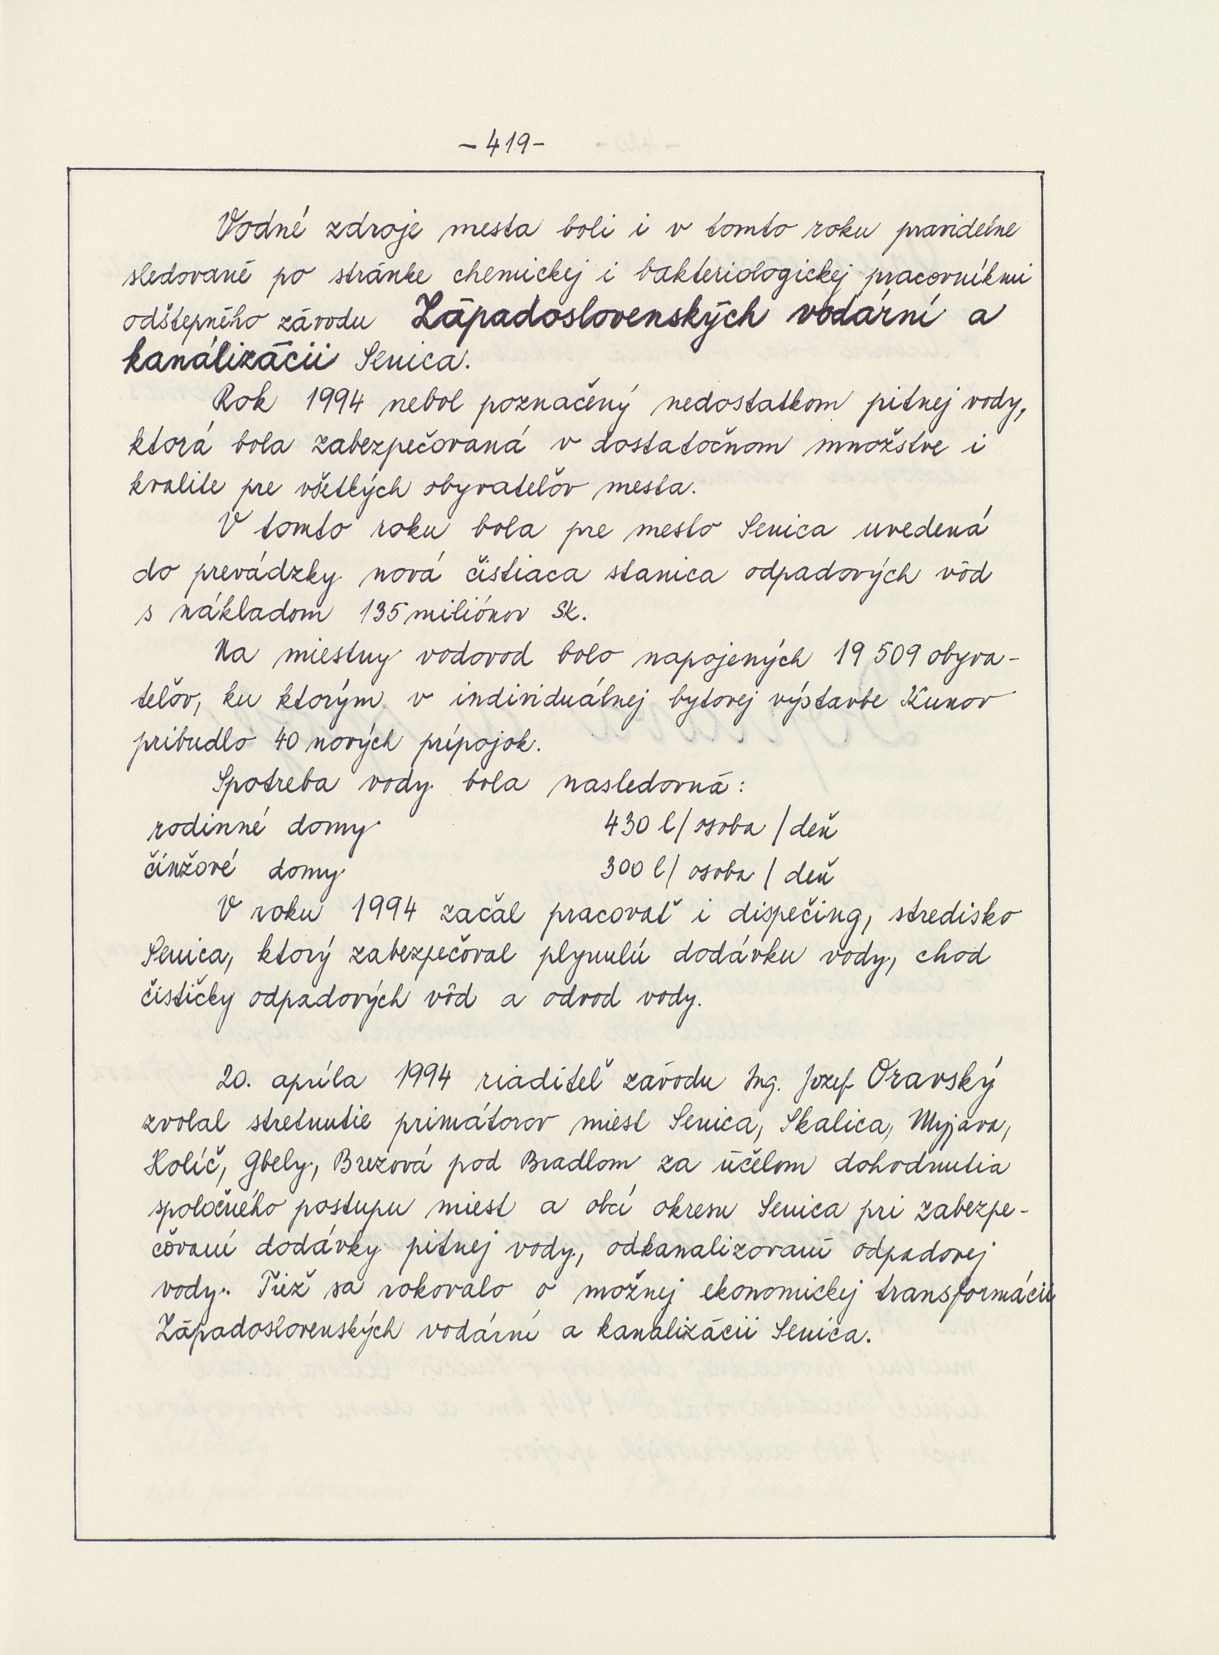 - 419 -
Vodné zdroje mesta boli i v tomto roku pravidelne
sledované po stránke chemickej i bakteriologickej pracovníkmi
odštepného závodu Západoslovenských vodární a
kanálizácii Senica.
Rok 1994 nebol poznačený nedostatkom pitnej vody,
ktorá bola zabezpečovaná v dostatočnom množstve i
kvalite pre všetkých obyvateľov mesta.
V tomto roku bola pre mesto Senica uvedená
do prevádzky nová čistiaca stanica odpadových vôd
s nákladom 135 miliónov Sk.
Na miestny vodovod bolo napojených 19 509 obyva-
teľov, ku ktorým v individuálnej bytovej výstavbe Kunov
pribudlo 40 nových prípojok.
Spotreba vody bola nasledovná:
rodinné domy 430 l/ osoba / deň
činžové domy 300 l/ osoba / deň
V roku 1994 začal pracovať i dispečing, stredisko
Senica, ktorý zabezpečoval plynulú dodávku vody, chod
čističky odpadových vôd a odvod vody.
20. apríla 1994 riaditeľ závodu Ing. Jozef Oravský
zvolal stretnutie primátorov miest Senica, Skalica, Myjava,
Holíč, Gbely, Brezová pod Bradlom za účelom dohodnutia
spoločného postupu miest a obcí okresu Senica pri zabezpe-
čovaní dodávky pitnej vody, odkanalizovaní odpadovej
vody. Tiež sa rokovalo o možnej ekonomickej transformácii
Západoslovenských vodární a kanalizácii Senica.